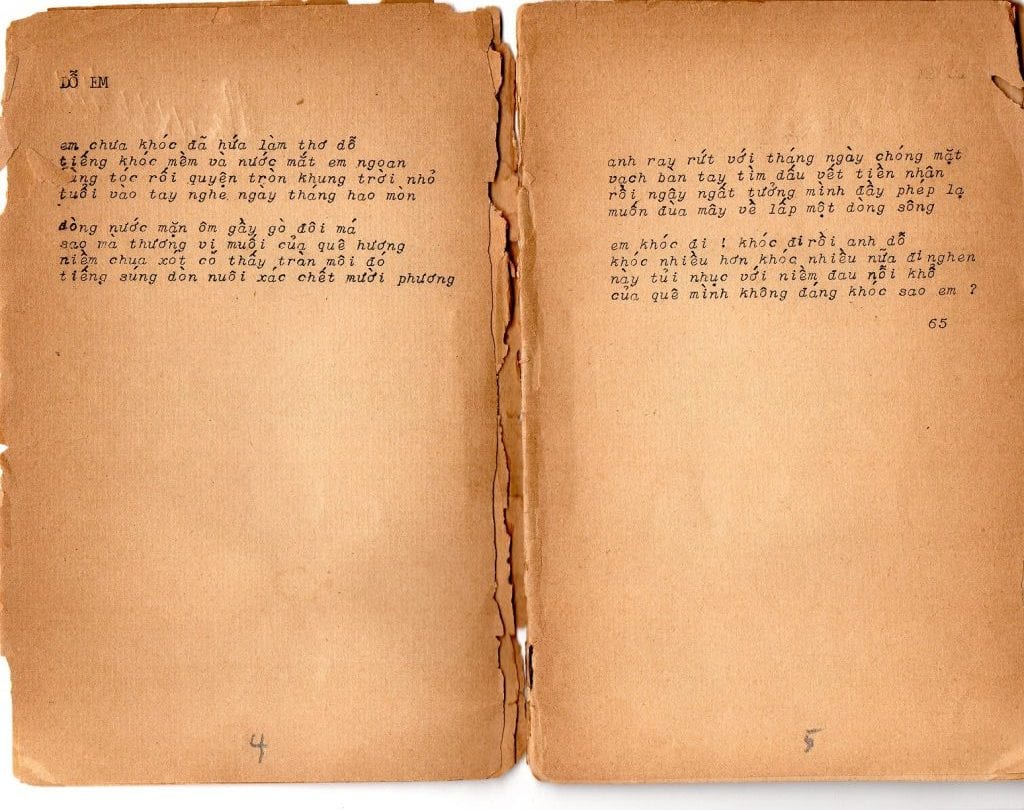 DỖ EM
em chưa khóc đã hứa làm thơ dỗ
tiếng khóc mềm và nước mắt em ngoan
tóc rối quyện tròn khung trời nhỏ
tuổi vào tay nghe ngày tháng hao mòn
dòng nước mặn ôm gầy gò đôi má
sao mà thương vị muối của quê hương
niềm chua xót có thấy tràn môi đó
tiếng súng dòn nuôi xác chết mười phương
4
anh ray rứt với tháng ngày chóng mặt
vạch bàn tay tìm dấu vết tiền nhân
rồi ngây ngất tưởng mình đầy phép lạ
muốn đùa mây về lấp một dòng sông
em khóc đi ! khóc đi rồi anh dỗ
khóc nhiều hơn khóc nhiều nữa đi nghen
này tủi nhục với niềm đau nỗi khổ
của quê mình không đáng khóc sao em ?
65
5